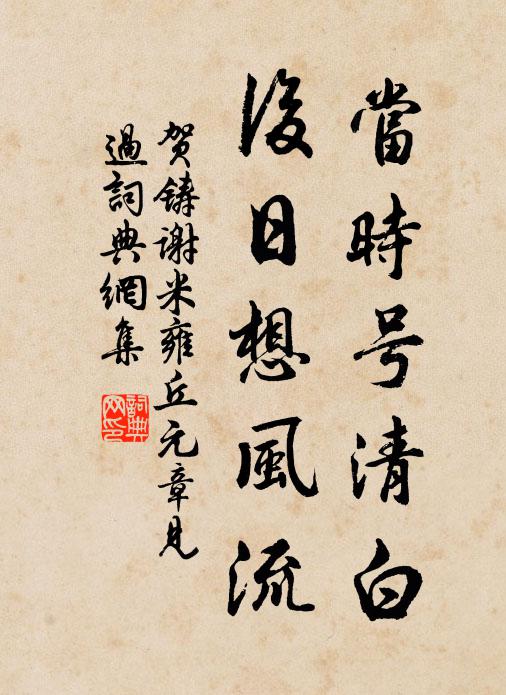 當時号清白
後日想風流
賀鑄謝米雍丘元章見
過詞典網集
詞典網印